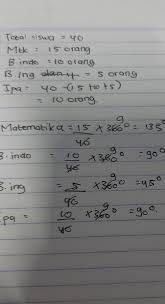 Total siswa = 40
Mtk = 15 orang
B indo = 10 orang
B Ing = 5 orang
Ipa = 40 - (15 10 + 5)
= 10 orang
Matematika = 15/40 × 360° 9 = 135°
B. indo = 10/40 × 360° 9 = 90°
B. ing = 5/40 × 360° 9 = 45°
Ipa = 10/40 × 360° 9 = 90°